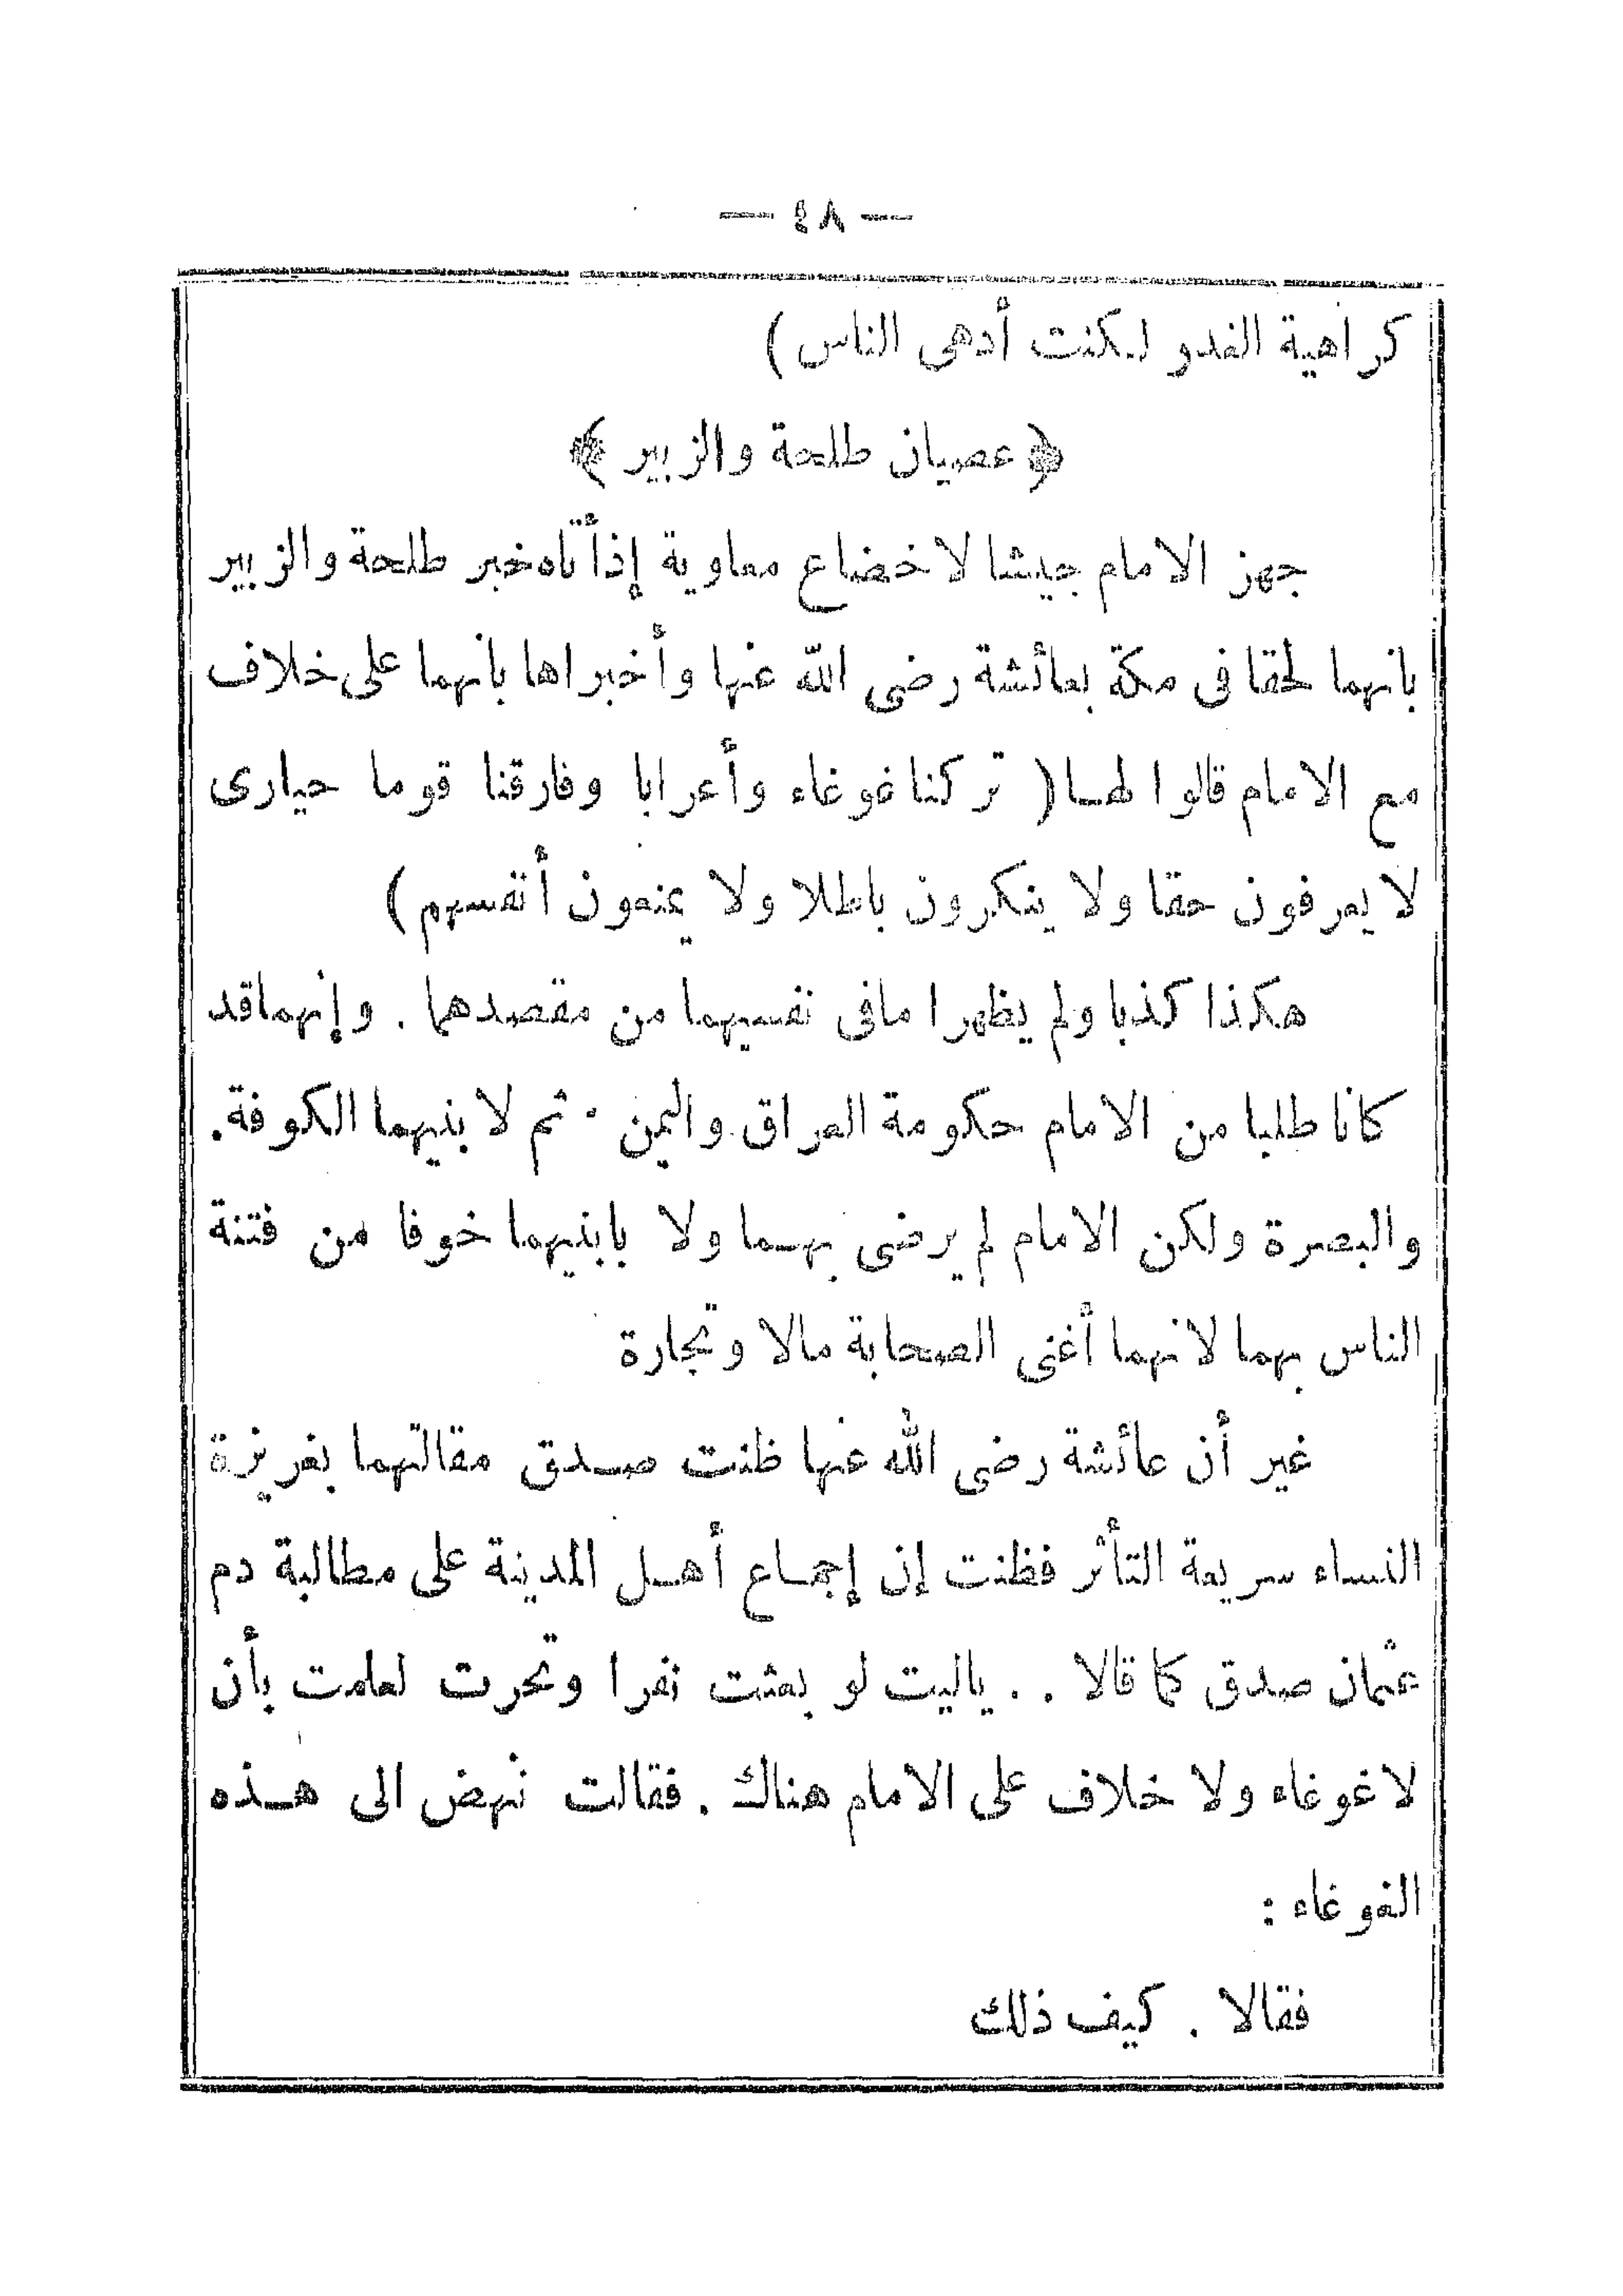 — ٤٨ —
كراهية الغدو لكنت أدهى الناس )
﴿ عصيان طلحة والزبير ﴾
جهز الامام جيشا لاخضاع معاوية إذأتاه خبر طلحة والزبير
بانهما لحقا فى مكة بعائشة رضى الله عنها وأخبراها بانهما على خلاف
مع الامام قالوا لهـا ( تركنا غوغاء وأعرابا وفارقنا قوما حيارى
لا يعرفون حقا ولا ينكرون باطلا ولا يمنعون أنفسهم )
هكذا كذبا ولم يظهرا مافى نفسيهما من مقصدهما . وإنهما قد
كانا طلبا من الامام حكومة العراق واليمن . ثم لابنيهما الكوفة .
والبصرة ولكن الامام لم يرضى بهـما ولا بابنيهما خوفا من فتنة
الناس بهما لانهما أغنى الصحابة مالا وتجارة
غير أن عائشة رضى الله عنها ظنت صـدق مقالتهما بغريزة
النساء سريعة التأثر فظنت إن إجمـاع أهـل المدينة على مطالبة دم
عثمان صدق كما قالا . . ياليت لو بعثت نفرا وتحرت لعلمت بأن
لاغوغاء ولا خلاف على الامام هناك . فقالت نهض الى هـذه
الغوغاء :
فقالا . كيف ذلك